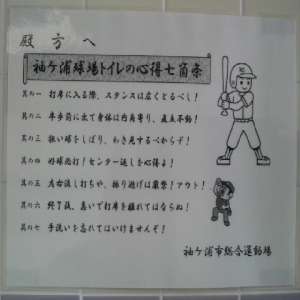 殿方へ
袖ケ浦球場トイレの心得七箇条
其の一 打席に入る際、スタンスは広くとるべし!
其の二 半歩前に出て身体は内角寄り、直立不動!
其の三 狙い球をしぼり、わき見するべからず!
其の四 好球必打!センター返しを心得よ!
其の五 左右流し打ちや、振り逃げは厳禁!アウト!
其の六 終了後、急いで打席を離れてはならぬ!
其の七 手洗いを忘れてはいけませんぞ!
袖ケ浦市総合運動場